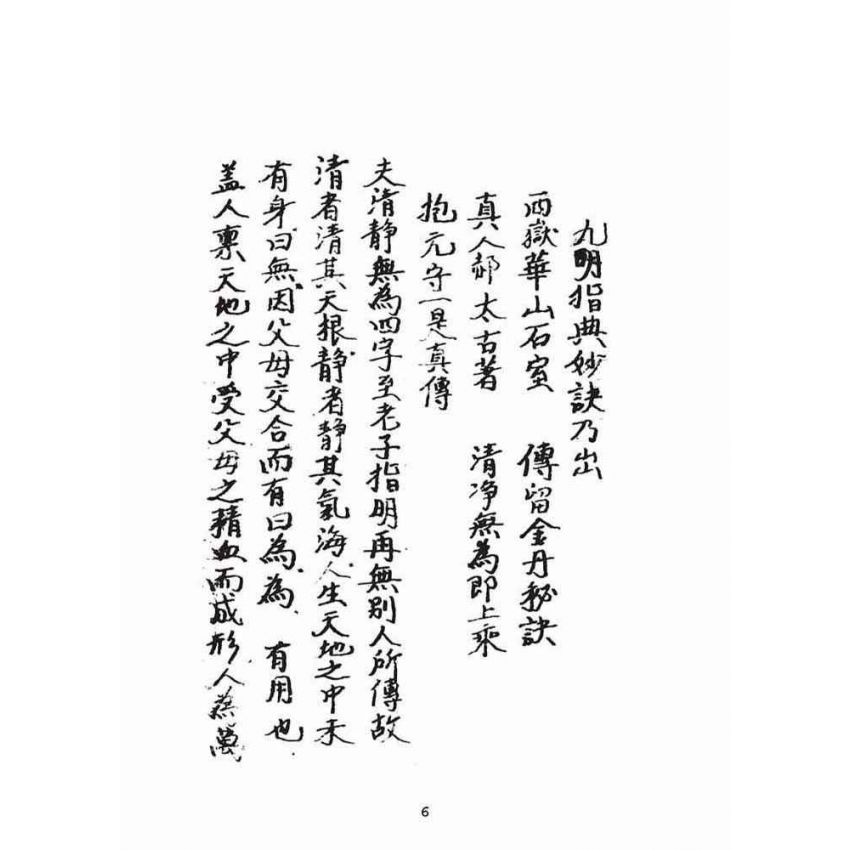 九明指典妙訣乃出
西嶽華山石室　傳留金丹秘訣
真人郝太古著　清净無為即上乘
抱元守一是真傳
夫清静無為四字至老子指明再無别人所傳故
清者清其天根静者静其氣海人生天地之中未
有身曰無因父母交合而有曰為為有用也
盖人禀天地之中受父母之精血而成形人為萬
6